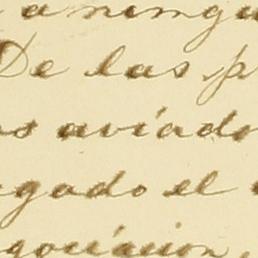 a ningu
De las p
os aviado
gado el
gociacion